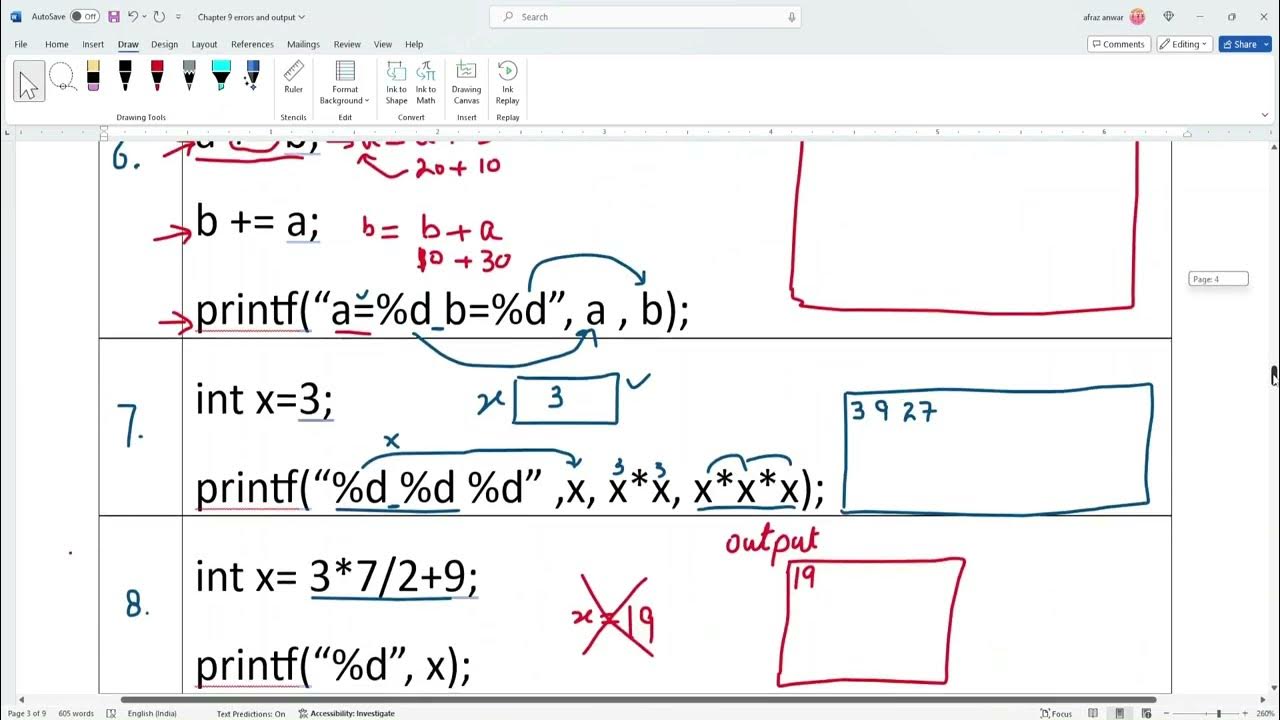 AutoSave Off Chapter 9 errors and output Search afraz anwar
File Home Insert Draw Design Layout References Mailings Review View Help Comments Editing Share
Ruler Format Background Ink to Shape Ink to Math Drawing Canvas Ink Replay
Drawing Tools Stencils Edit Convert Insert Replay
1 2 3 4 5 6
6.
20 + 10
b += a; b = b + a
10 + 30
Page: 4
printf(“a=%d b=%d”, a , b);
int x=3; x 3
7.
3 9 27
x
3 3
printf(“%d %d %d” ,x, x*x, x*x*x);
output
int x= 3*7/2+9;
19
8.
x = 19
printf(“%d”, x);
Page 3 of 9 605 words English (India) Text Predictions: On Accessibility: Investigate Focus 260%